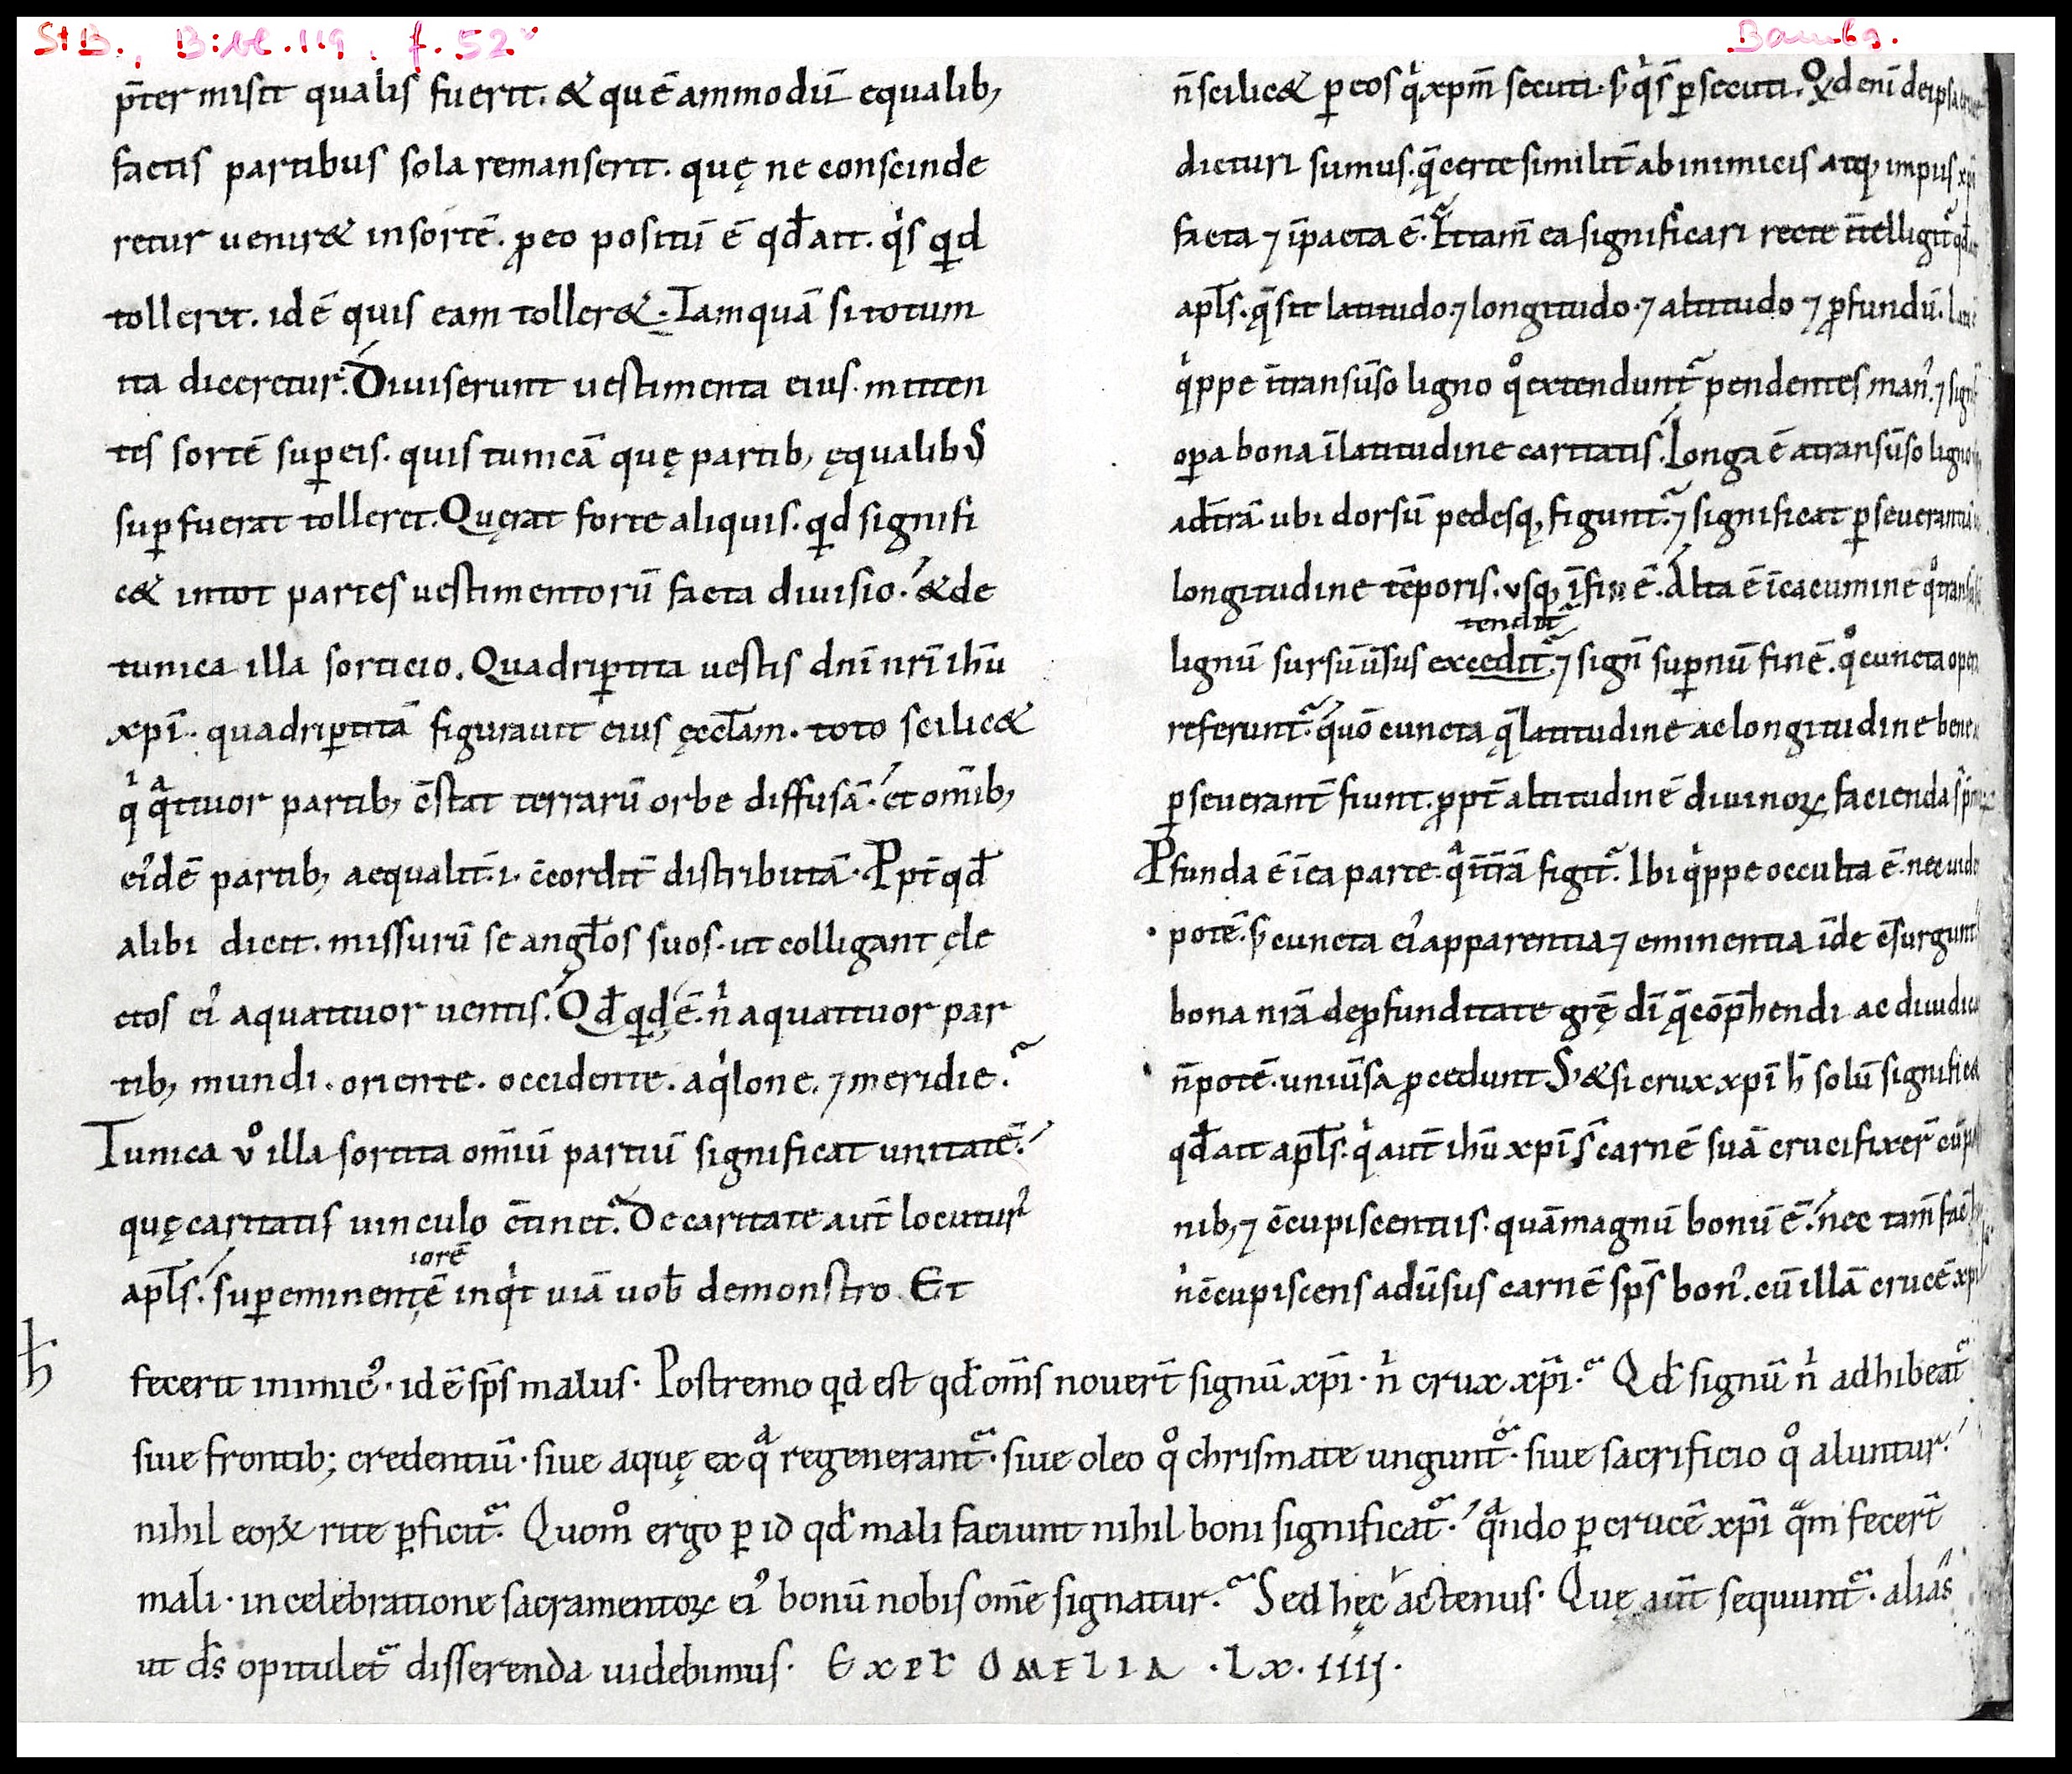 StB., Bibl. 119. f. 52v
Bambg.
p̄ter misit qualis fuerit. & quē ammodū equalib;
factis partibus sola remanserit. quę ne conscinde
retur uenir& in sortē. ꝓeo positū ē qđ ait. q̇s qͥd
tolleret. id ē quis eam toller&. Tamquā si totum
ita diceretur. Diuiserunt uestimenta eius. mitten
tes sortē suꝑ eis. quis tunicā quę partib; ęqualib;
suꝑfuerat tolleret. Quęrat forte aliquis. qͥd signifi
c& in tot partes uestimentorū facta diuisio. & de
tunica illa sorticio. Quadriꝑtita uestis dn̄i nr̄i ihū
xp̄i. quadriꝑtitā figurauit eius ęcclam̄. toto scilic&
qͥ qͣttuor partib; c̄stat terrarū orbe diffusā. et om̄ib;
ei᾽dē partib; aequalit̄. i. c̄cordit̄ distributā. Ppt̄ qđ
alibi dicit. missurū se angłos suos. ut colligant ęle
ctos ei᾽ a quattuor uentis. Qđ qͥd ē. ṅ a quattuor par
tib; mundi. oriente. occidente. aqͥlone. ⁊ meridie.
Tunica vͦ illa sortita om̄iū partiū significat unitatē.
quę caritatis uinculo c̄tinet᷑. De caritate aut̄ locutur᾽
apłs. suꝑeminentę̄ inqͥt uiā uob̄ demonstro. Et
iorē
n̄ scilic& ꝑ eos qͥ xpm̄ secuti. s; qͥ s̄ ꝑsecuti. Qd eni de ipsa
dicturi sumus. q̄ certe similit̄ ab inimicis atq; impiis xp̄i
facta ⁊ īpacta ē. Et tam̄ ea significari recte īt̄elligit᷑ qđ
apłs. q̄ sit latitudo ⁊ longitudo. ⁊ altitudo ⁊ ꝓfundū.
qͥppe ī transūso ligno qͦ extendunt᷑ pendentes man᾽. ⁊
oꝑa bona ī latitudine caritatis. Longa ē a transūso ligno
ad tr̄ā. ubi dorsū pedesq; figunt᷑. ⁊ significat ꝑseuerantiā
longitudine tēporis. vsq; ī finē. Alta ē ī cacumine qͦ
tendit᷑
lignū sursū ūsus excedit᷑. ⁊ sign̄ suꝑnū finē. qͦ cuncta
referunt᷑. qͥuō cuncta q̄ latitudine ac longitudine bene
ꝑseuerant̄ fiunt. ꝓpt̄ altitudinē diuinoꝝ facienda
Pfunda ē ī ea parte. qͣ ī tr̄ā figit᷑. Ibi qͥppe occulta ē. nec
potē. s; cuncta ei᾽ apparentia ⁊ eminentia īde c̄surgunt
bona nr̄ā de ꝓfunditate grę̄ dī q̄ cōp̄hendi ac
n̄ potē. uniūsa ꝓcedunt. S; & si crux xp̄i h̄ solū
qđ ait apłs. qͥ aut̄ ihū xp̄i s̄ carnē suā crucifixer̄
nib; ⁊ c̄cupiscentiis. quā magnū bonū ē. nec tam̄
ṅ c̄cupiscens adūsus carnē sp̄s bon᾽. cū illā crucē xp̄i
ħ
fecerit inimic᾽. id ē sp̄s malus. Postremo qͥd est qđ om̄s nouer̄t signū xp̄i. ṅ crux xp̄i. Qđ signū ṅ adhibeat᷑
siue frontib; credentiū. siue aquę ex qͣ regenerant᷑. siue oleo qͦ chrismate ungunt᷑. siue sacrificio qͦ aluntur.
nihil eoꝝ rite ꝑficit᷑. Quomͦ ergo ꝑ id qđ mali faciunt nihil boni significat᷑. qͣndo ꝑ crucē xp̄i qͣm fecer̄t
mali. in celebratione sacramentoꝝ ei᾽ bonū nobis om̄e signatur. Sed hęc actenus. Quę aut̄ sequunt᷑. alias
ut d̄s opitulet᷑ disserenda uidebimus. EXPL OMELIA .LX.IIII.